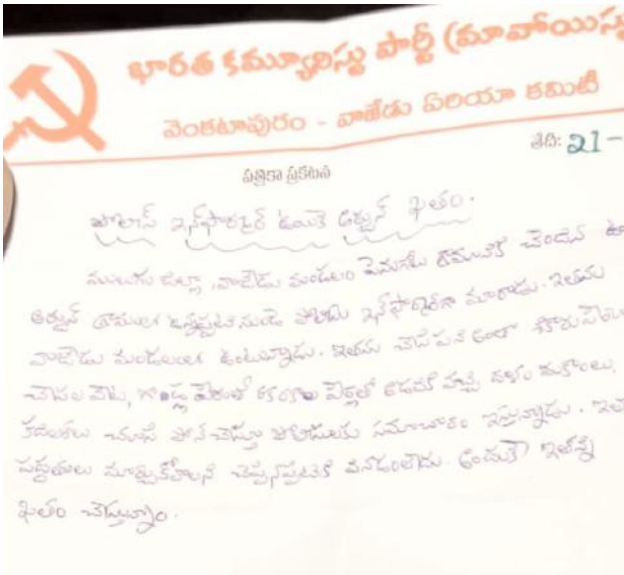 భారత కమ్యూనిస్టు పార్టీ (మావోయిస్టు
వెంకటాపురం - వాజేడు ఏరియా కమిటీ
తేది: 21-
పత్రికా ప్రకటన
పోలీస్ ఇన్‌ఫార్మర్ ఉయికె అర్జున్ ఖతం.
ములుగు జిల్లా, వాజేడు మండలం పెనుగోలు గ్రామానికి చెందిన
అర్జున్ గ్రామంలో ఉన్నప్పటి నుండి పోలీసు ఇన్‌ఫార్మర్‌గా మారాడు. ఇతను
వాజేడు మండలంలో ఉంటున్నాడు. ఇతను చేసే పని అంతా
చేపల వేట, పేరుతో రకరకాల పేర్లతో అడవికి వచ్చి దళం మకాంలు,
కదలికలు చూసి ఫోన్ చేస్తూ పోలీసులకు సమాచారం ఇస్తున్నాడు.
పద్ధతులు మార్చుకోవాలని చెప్పినప్పటికి వినడంలేదు. అందుకే ఇతన్ని
ఖతం చేస్తున్నాం.